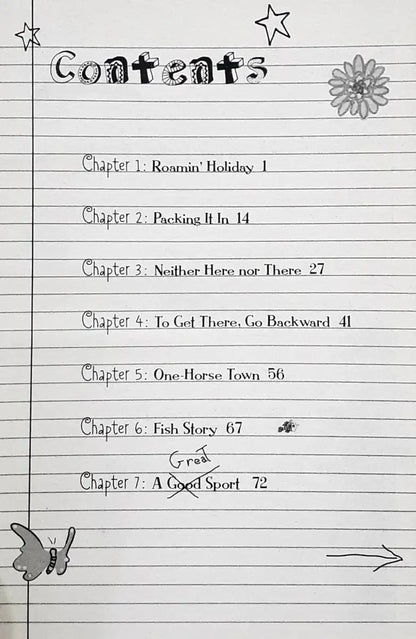 Contents
Chapter 1: Roamin' Holiday 1
Chapter 2: Packing It In 14
Chapter 3: Neither Here nor There 27
Chapter 4: To Get There, Go Backward 41
Chapter 5: One-Horse Town 56
Chapter 6: Fish Story 67
Great
Chapter 7: A Good Sport 72